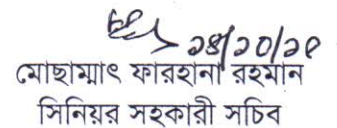 ২৪/১০/১৫
মোছাম্মাৎ ফারহানা রহমান
সিনিয়র সহকারী সচিব